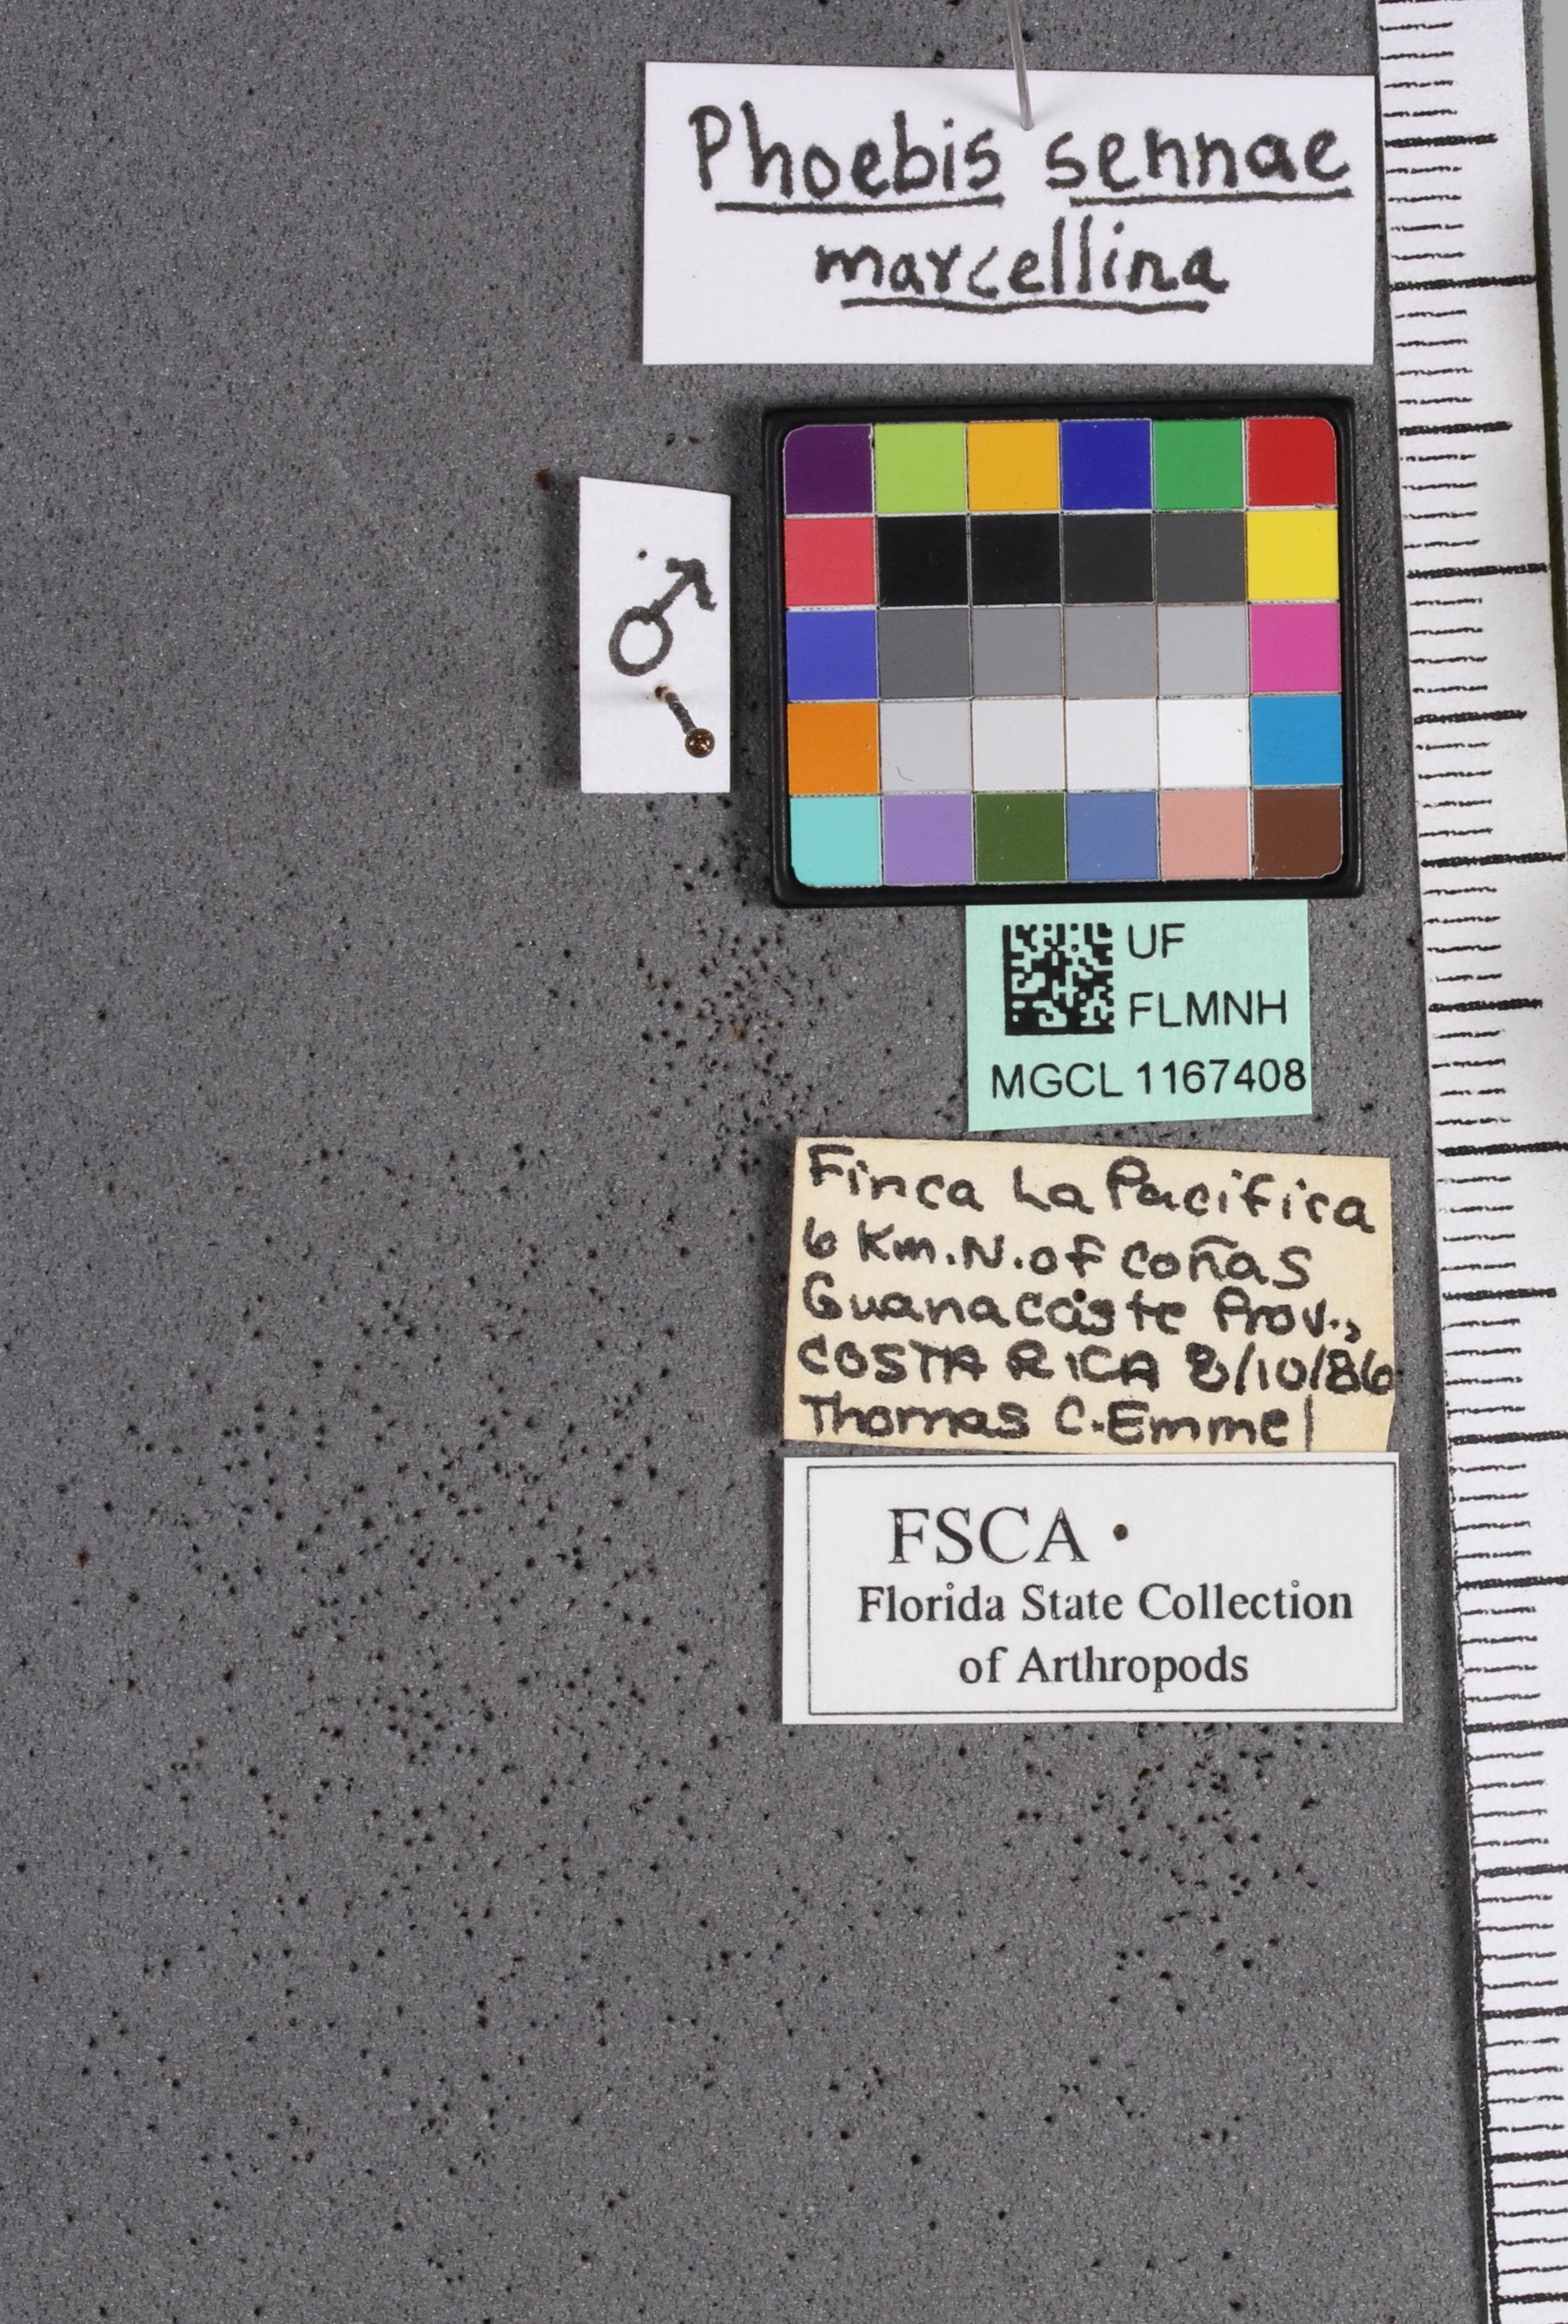 Phoebis sennae
marcellina
♂
UF
FLMNH
MGCL 1167408
Finca La Pacifica
6 Km. N. of Coñas
Guanacaste Prov.,
COSTA RICA 8/10/86
Thomas C. Emmel
FSCA
Florida State Collection
of Arthropods